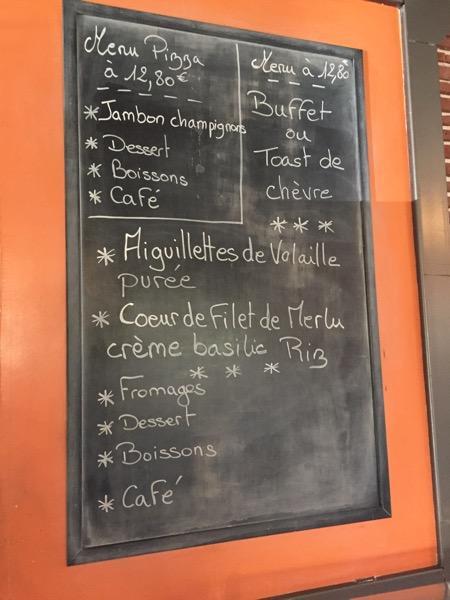 Menu Pizza
à 12,80€
* Jambon champignons
* Dessert
* Boissons
* Café
Menu à 12,80
Buffet
ou
Toast de
chèvre
* * *
* Aiguillettes de Volaille
purée
* Coeur de Filet de Merlu
crème basilic Riz
* * *
* Fromages
* Dessert
* Boissons
* Café